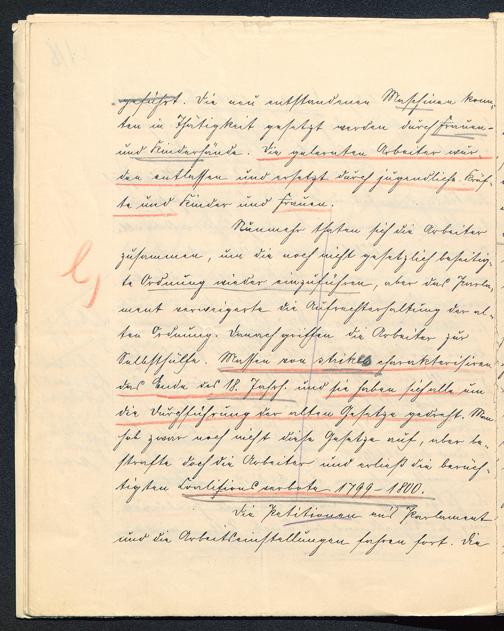 geführt. Die neu entstandenen Maschinen konn-
ten in Thätigkeit gesetzt werden durch Frauen-
und Kinderhände. Die gelernten Arbeiter wur-
den entlassen und ersetzt durch jugendliche Kräf-
te und Kinder und Frauen.
Nunmehr thaten sich die Arbeiter
zusammen, um die noch nicht gesetzlich beseitig-
te Ordnung wieder einzuführen, aber das Parla-
ment verweigerte die Aufrechterhaltung der al-
ten Ordnung. Danach griffen die Arbeiter zur
Selbsthülfe. Massen von strikes charakterisiren
das Ende des 18. Jahrh. und sie haben sich alle um
die Durchführung der alten Gesetze gedreht. Man
hob zwar noch nicht diese Gesetze auf, aber be-
strafte doch die Arbeiter und erließ die berüch-
tigten Coalitionsverbote 1799-1800.
Die Petitionen an's Parlament
und die Arbeitseinstellungen fahren fort. Die